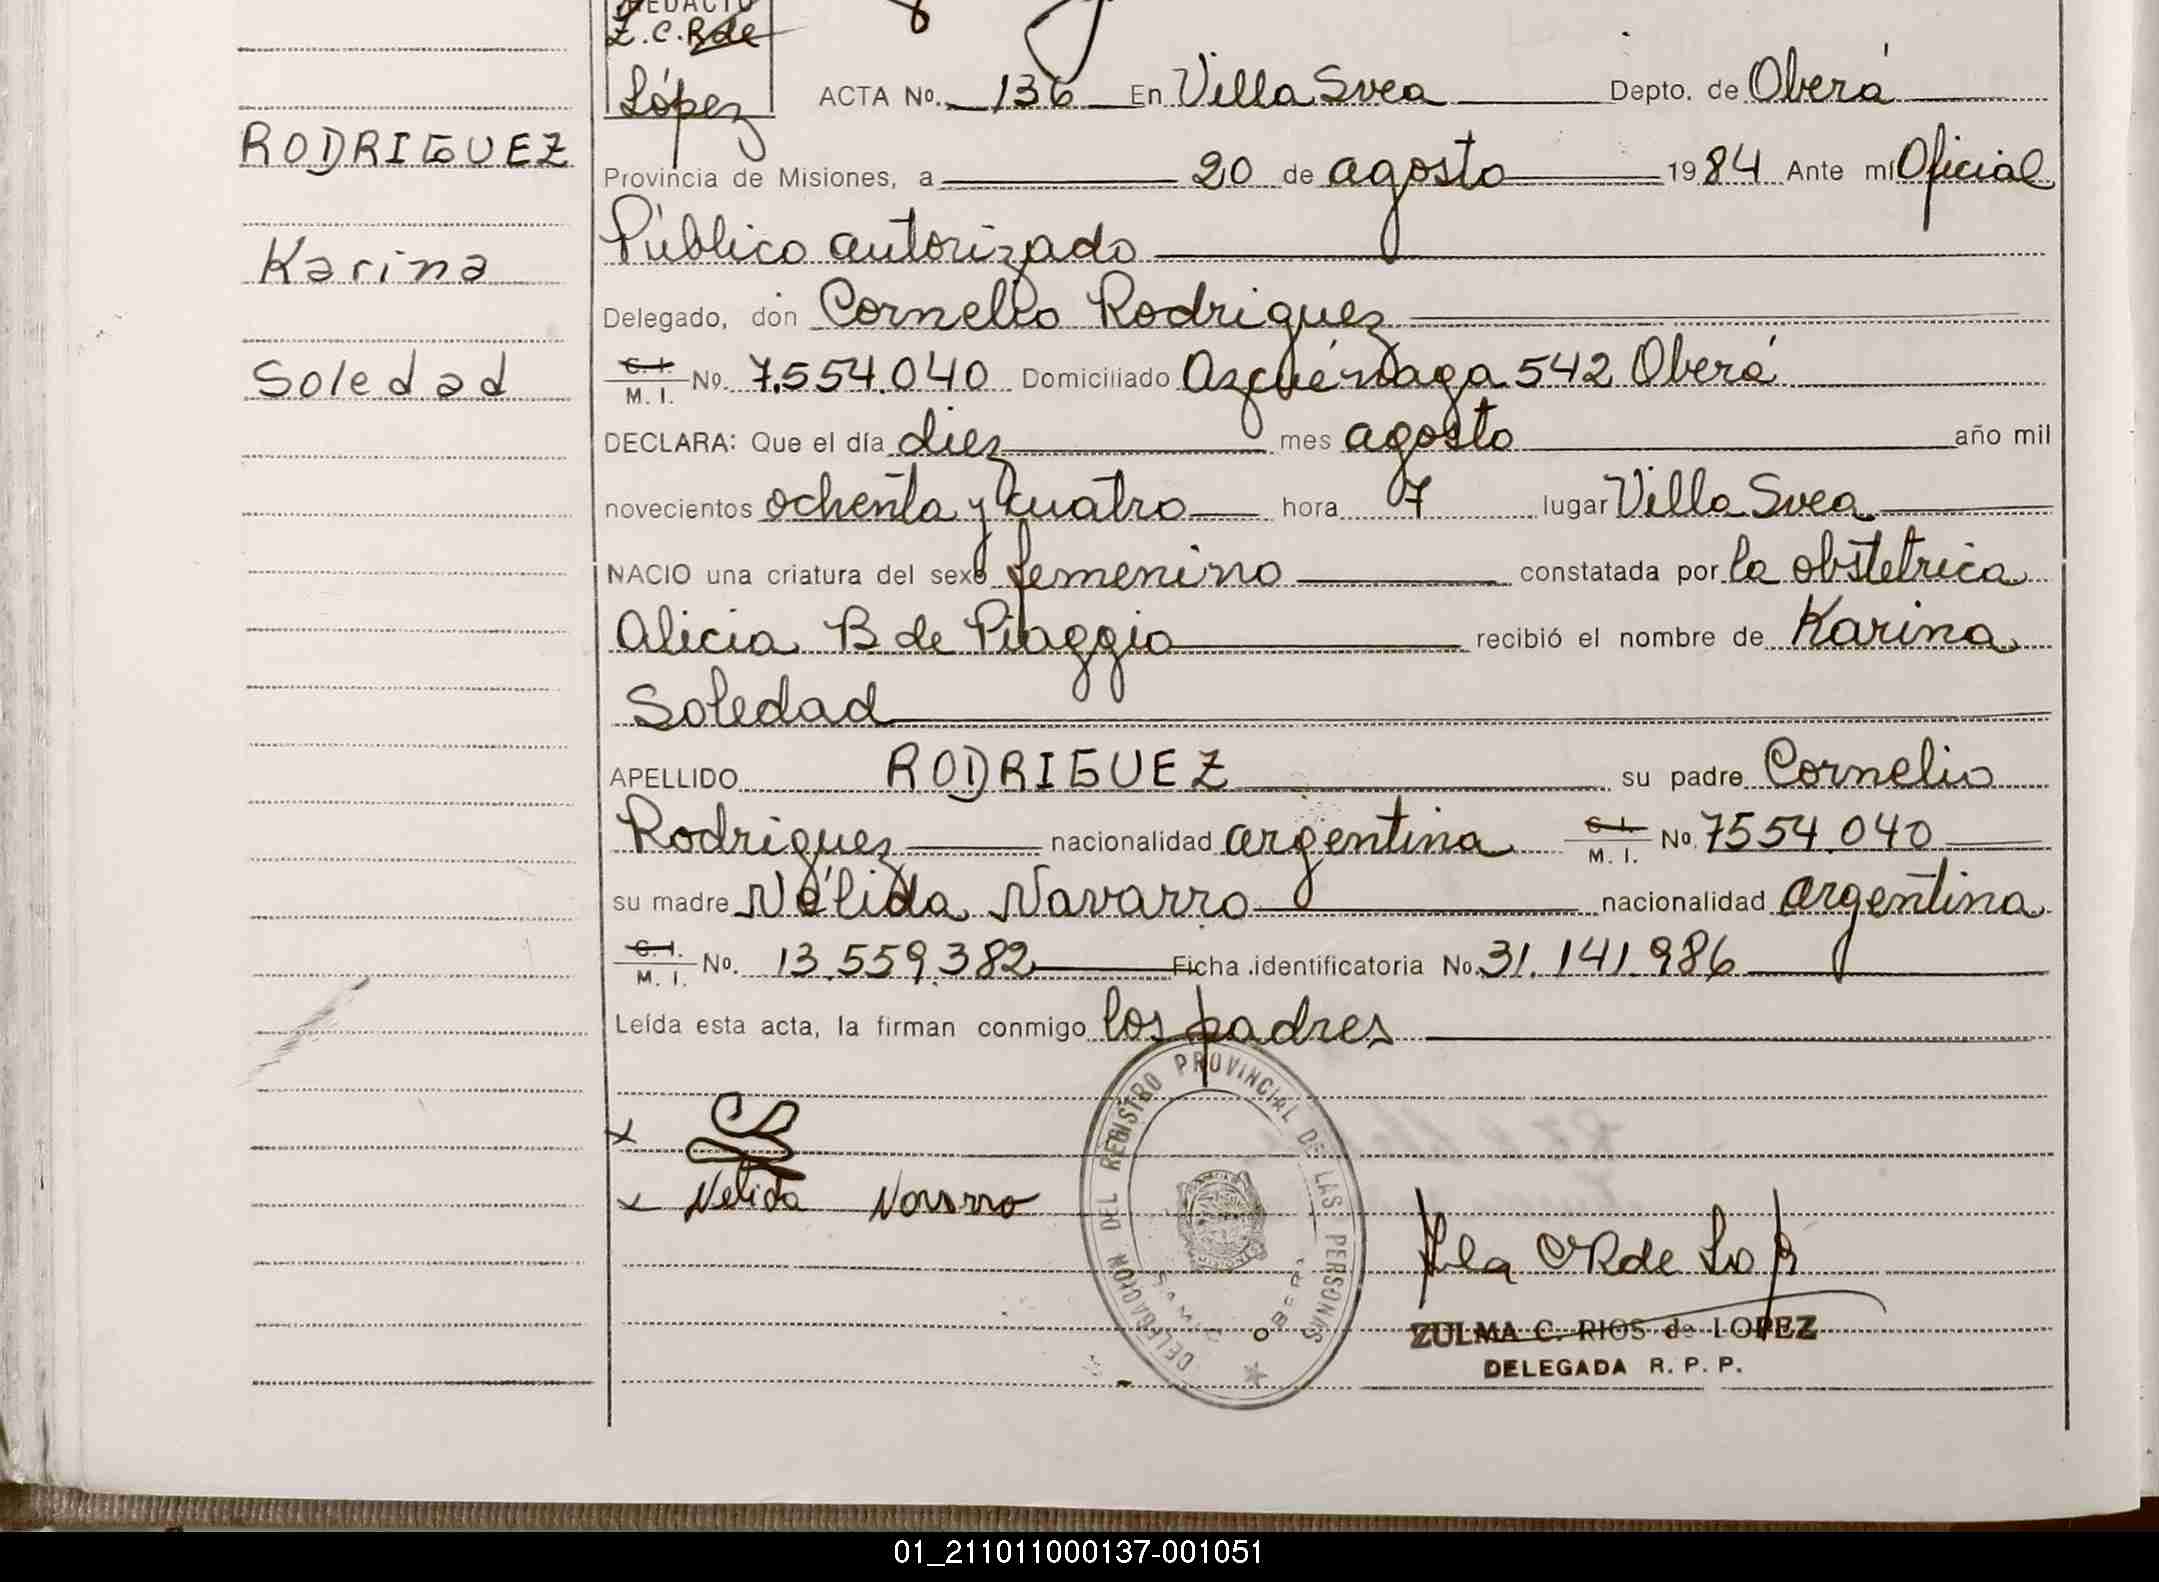 REDACTO
Z. C. R de
López
ACTA No. 136 En Villa Svea Depto. de Oberá
RODRIGUEZ
Provincia de Misiones, a 20 de agosto 1984 Ante mí Oficial
Público autorizado
Karina
Delegado, don Cornelio Rodriguez
Soledad
C. I. M. I. No. 7.554.040 Domiciliado Azcuénaga 542 Oberá
DECLARA: Que el día diez mes agosto año mil
novecientos ochenta y cuatro hora 7 lugar Villa Svea
NACIO una criatura del sexo femenino constatada por la obstetrica
Alicia B de Piaggio recibió el nombre de Karina
Soledad
APELLIDO RODRIGUEZ su padre Cornelio
Rodriguez nacionalidad argentina C. I. M. I. No. 7554.040
su madre Nélida Navarro nacionalidad argentina
C. I. M. I. No. 13.559.382 Ficha identificatoria No. 31.141.986
Leída esta acta, la firman conmigo los padres
DELEGACION DEL REGISTRO PROVINCIAL DE LAS PERSONAS
x
x Nelida Navarro
SAMIC OBERA
ZULMA C. RIOS de LOPEZ
DELEGADA R. P. P.
01_211011000137-001051